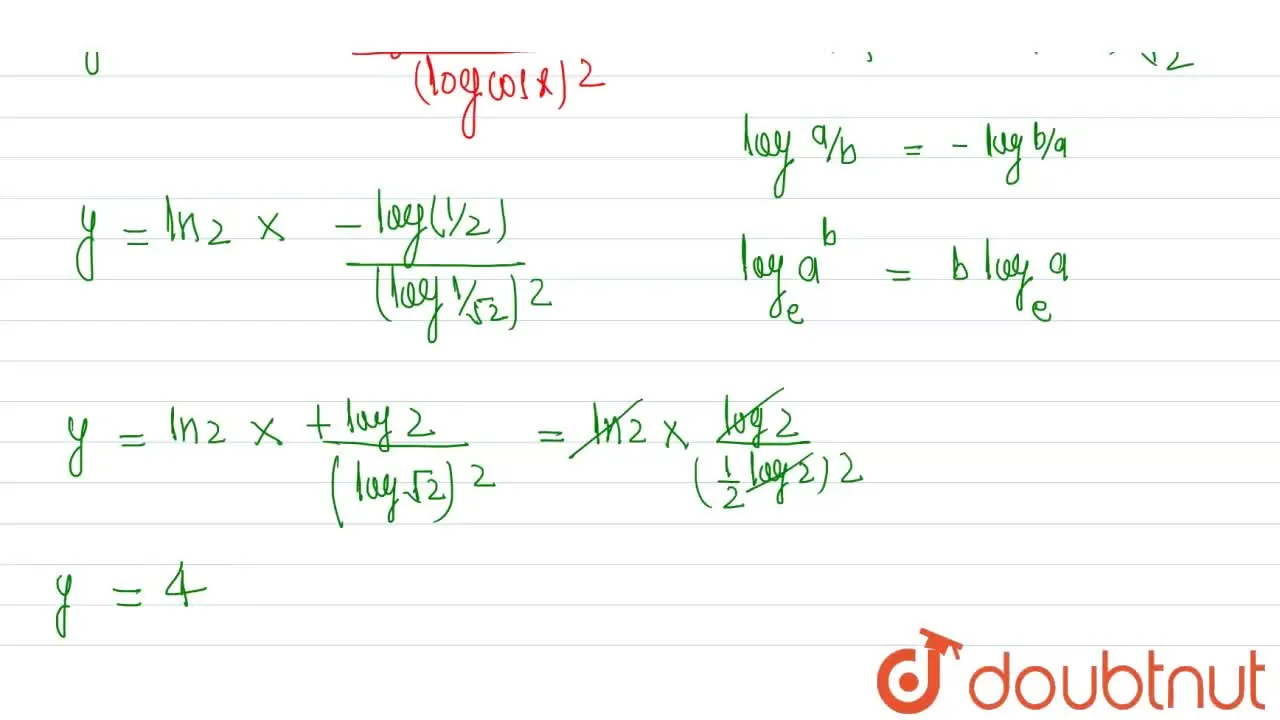 (log cos x)2
√2
log a/b = - log b/a
y = ln2 × -log(1/2)/(log 1/√2)2
logₑ aᵇ = b logₑ a
y = ln2 × +log 2/(log √2)2 = ln2 × log 2/(1/2 log 2)2
y = 4
doubtnut